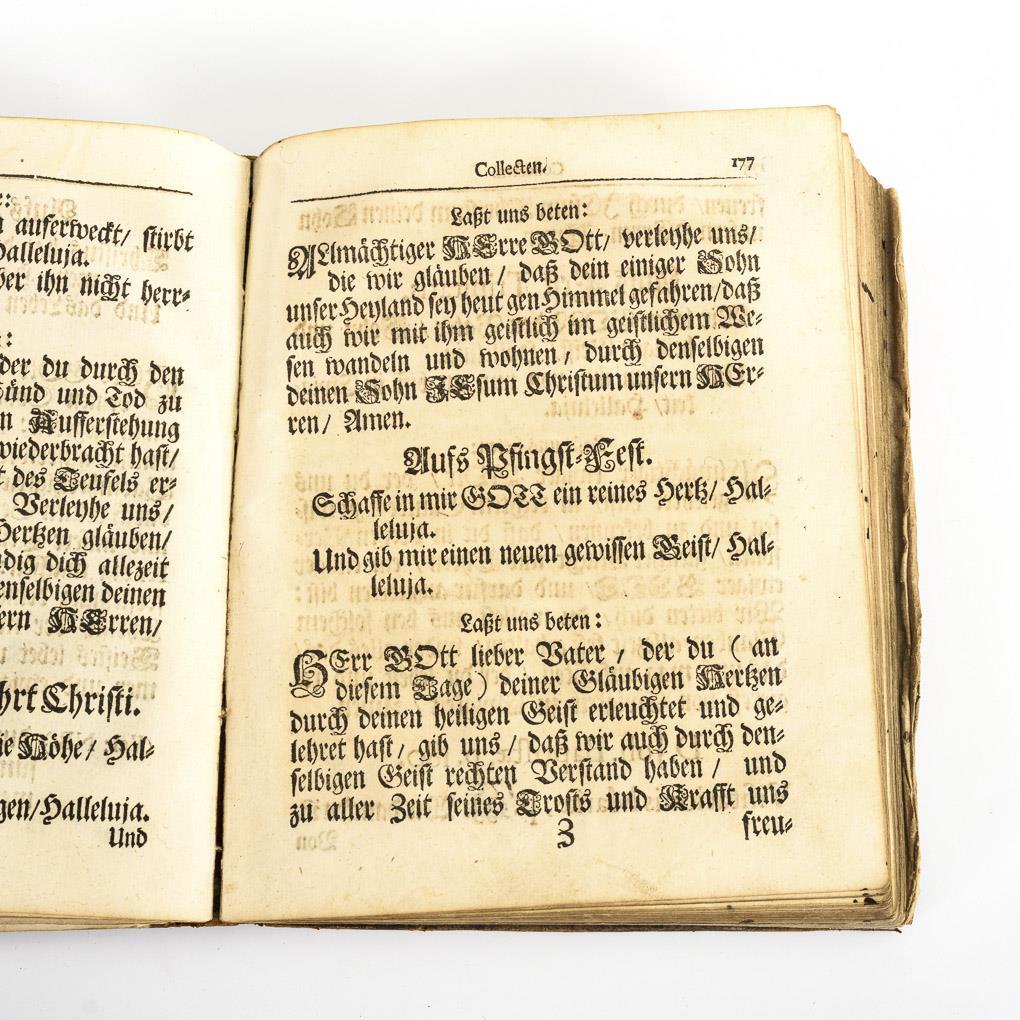 auferweckt/ stirbt
Halleluja.
ber ihn nicht herr-
der du durch den
Sünd und Tod zu
Aufferstehung
wiederbracht hast/
des Teufels er-
Verleyhe uns/
Hertzen gläuben/
dig dich allezeit
enselbigen deinen
ern HErren/
hrt Christi.
ie Höhe/ Hal-
gen/Halleluja.
Und
Collecten. 177
Laßt uns beten:
ALlmächtiger HErre GOtt/ verleyhe uns/
die wir gläuben/ daß dein einiger Sohn
unser Heyland sey heut gen Himmel gefahren/daß
auch wir mit ihm geistlich im geistlichem We-
sen wandeln und wohnen/ durch denselbigen
deinen Sohn JEsum Christum unsern HEr-
ren/ Amen.
Aufs Pfingst-Fest.
Schaffe in mir GOTT ein reines Hertz/ Hal-
leluja.
Und gib mir einen neuen gewissen Geist/ Hal-
leluja.
Laßt uns beten:
HErr GOtt lieber Vater/ der du (an
diesem Tage) deiner Gläubigen Hertzen
durch deinen heiligen Geist erleuchtet und ge-
lehret hast/ gib uns/ daß wir auch durch den-
selbigen Geist rechten Verstand haben/ und
zu aller Zeit seines Trosts und Krafft uns
Z freu-